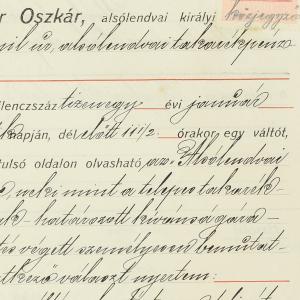 r Oszkár, alsólendvai királyi közjegyző
mil úr, alsólendvai takarékpénz
lenczszáz tizenegy évi január
k napján, dél előtt 11 1/2 órakor egy váltót,
tulsó oldalon olvasható, az Alsólendvai
neki mint a telepes takarék-
határozott kivánságára
tés végett személyesen bemutat-
tkező választ nyertem: